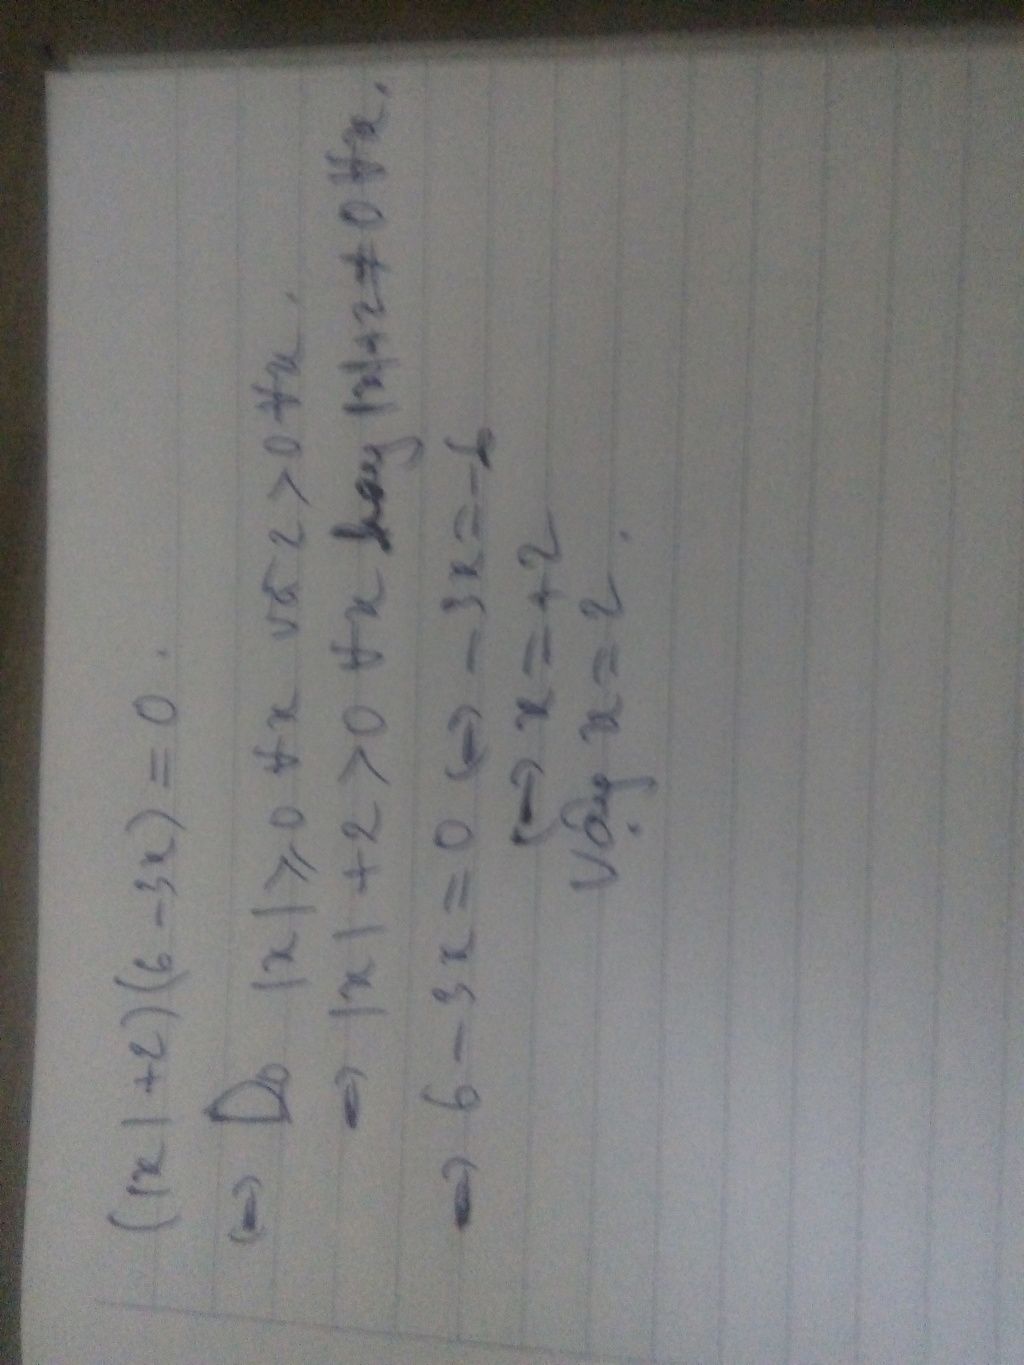 (|x|+2)(6-3x)=0.
⇔ Do |x|⩾0 ∀x và 2>0 ∀x.
⇒ |x|+2>0 ∀x hay |x|+2≠0 ∀x.
⇒ 6-3x=0 ⇔ -3x=-6
⇔ x=+2
Vậy x=2.